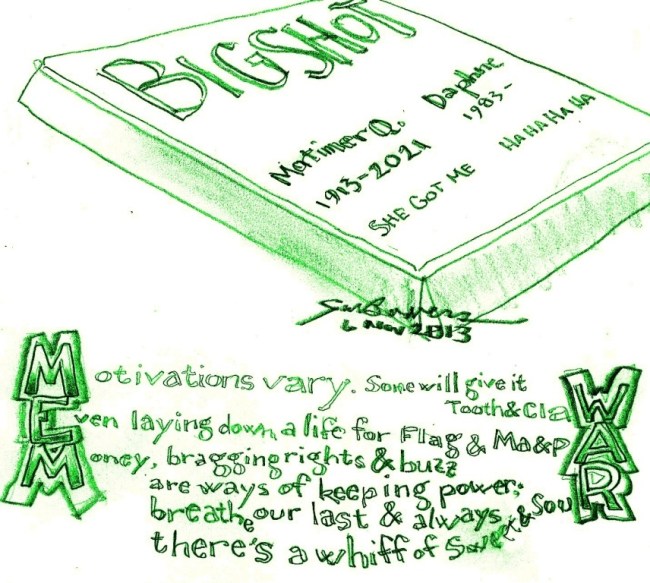 BIGSHOT
Mortimer Q. Daphne
1913-2021 1983-
SHE GOT ME HA HA HA HA
6 Nov 2013
Motivations vary. Some will give it
Tooth & ClaW
Even laying down a life for Flag & Ma&PA
Money, bragging rights & buzz
are ways of keeping power;
breathe our last & always
there's a whiff of Sweet & SouR